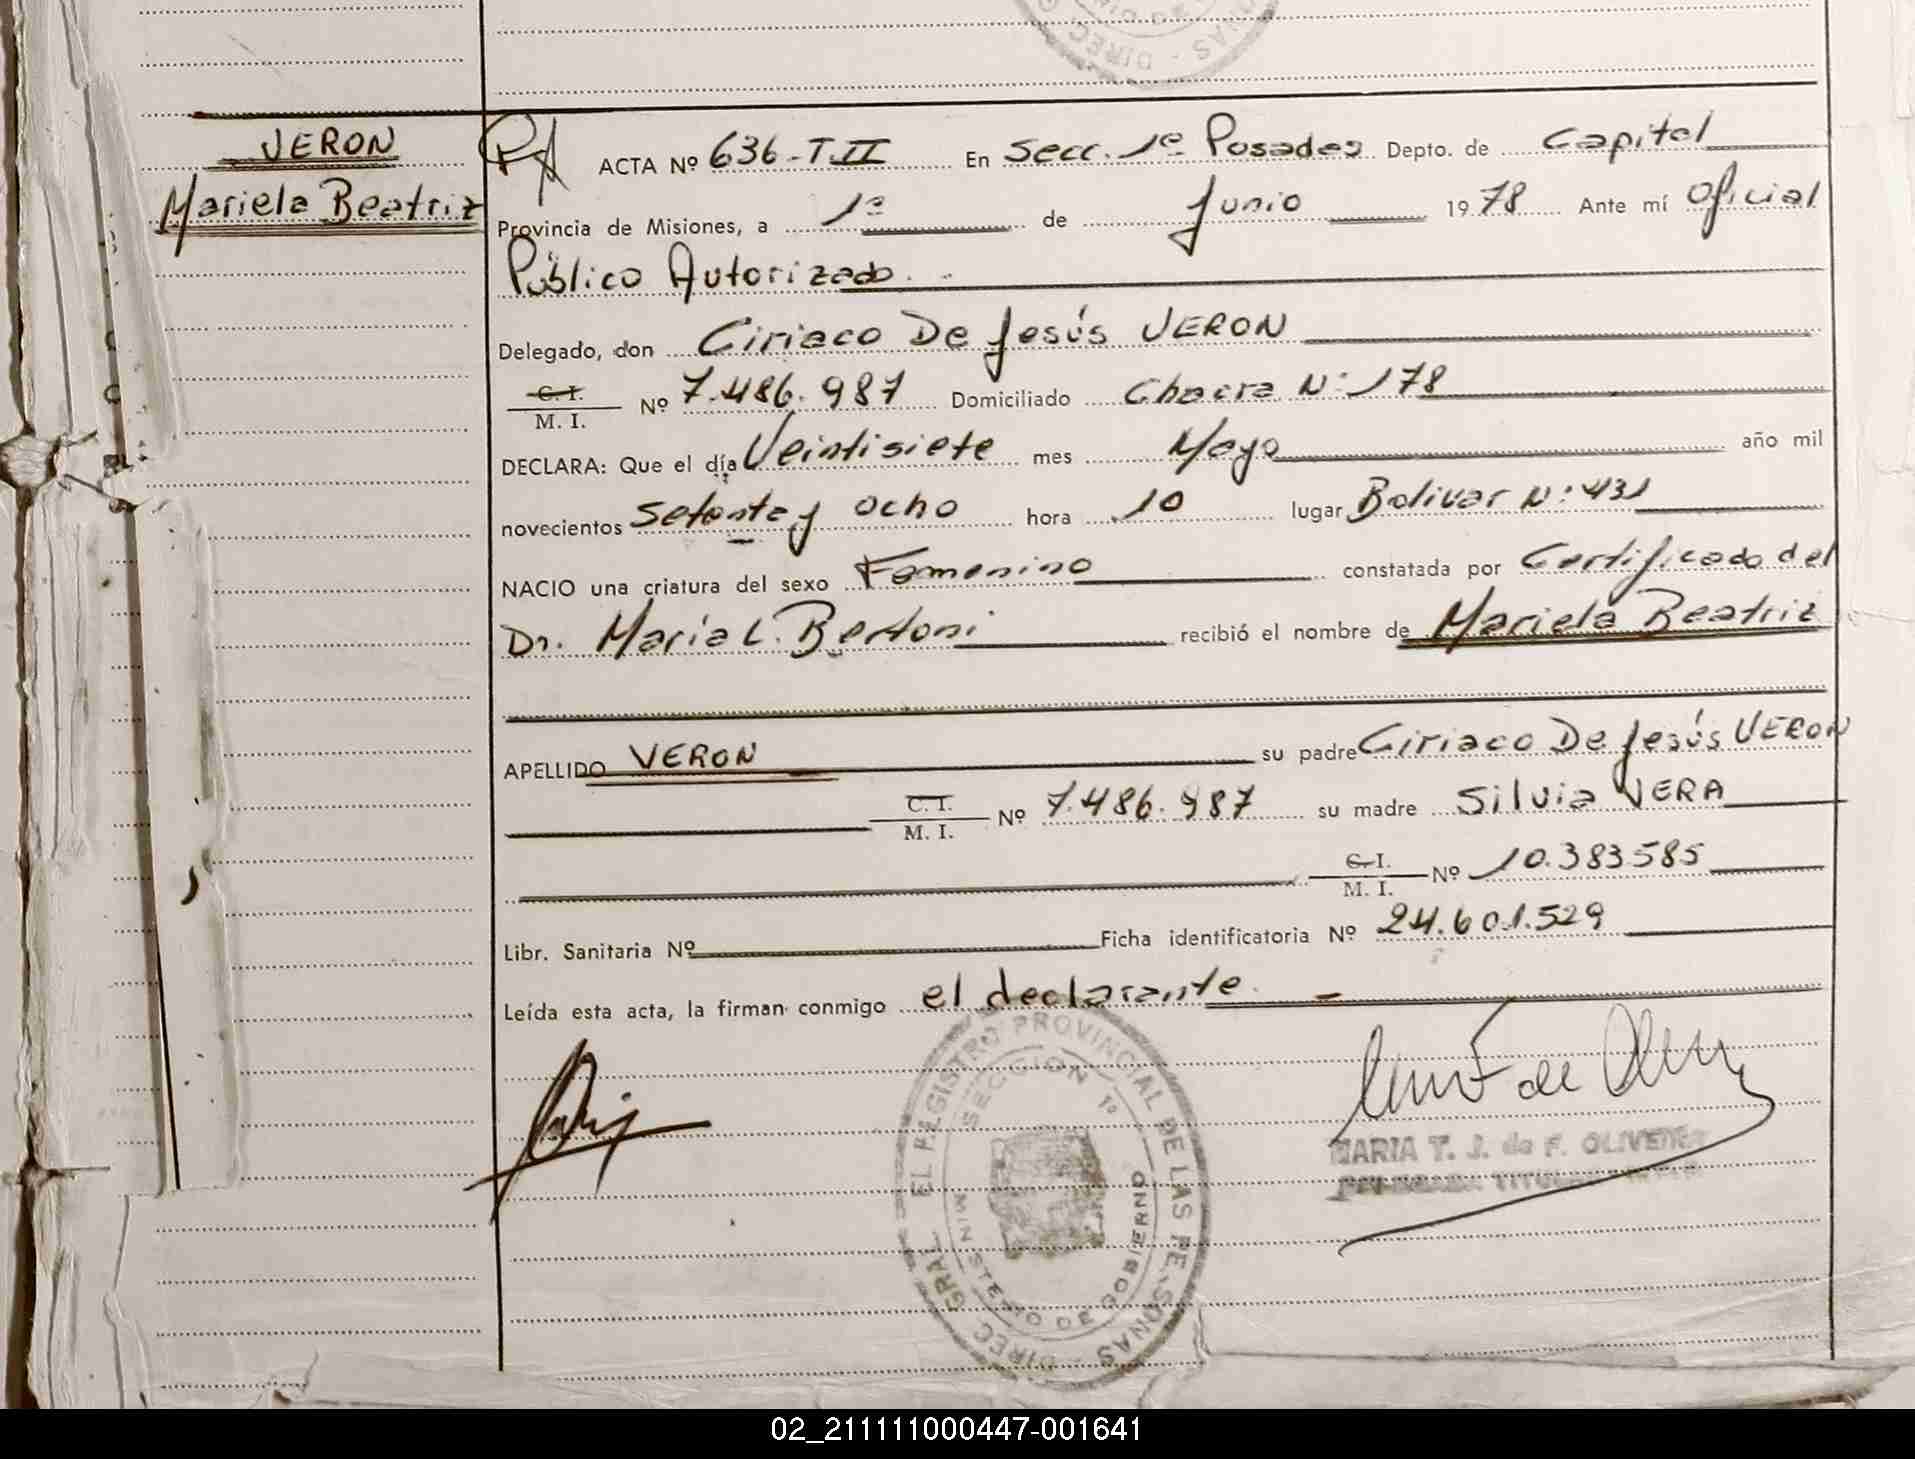 VERON
Mariela Beatriz
ACTA Nº 636-T.II En Secc. 1º Posadas Depto. de Capital
Provincia de Misiones, a 1º de Junio 1978 Ante mí Oficial
Público Autorizado.
Delegado, don Ciriaco De Jesús VERON
C. I. / M. I. Nº 7.486.987 Domiciliado Chacra Nº 178
DECLARA: Que el día Veintisiete mes Mayo año mil
novecientos Setenta y ocho hora 10 lugar Bolivar Nº 431
NACIO una criatura del sexo Femenino constatada por Certificado del
Dr. María L. Bertoni recibió el nombre de Mariela Beatriz
APELLIDO VERON su padre Ciriaco De Jesús VERON
C. I. / M. I. Nº 7.486.987 su madre Silvia VERA
C. I. / M. I. Nº 10.383.585
Libr. Sanitaria Nº Ficha identificatoria Nº 24.601.529
Leída esta acta, la firman conmigo el declarante.
DIREC. GRAL. EL REGISTRO PROVINCIAL DE LAS PERSONAS
SECCION 1º
MINISTERIO DE GOBIERNO
MARIA T. J. de F. OLIVEIRA
02_211111000447-001641